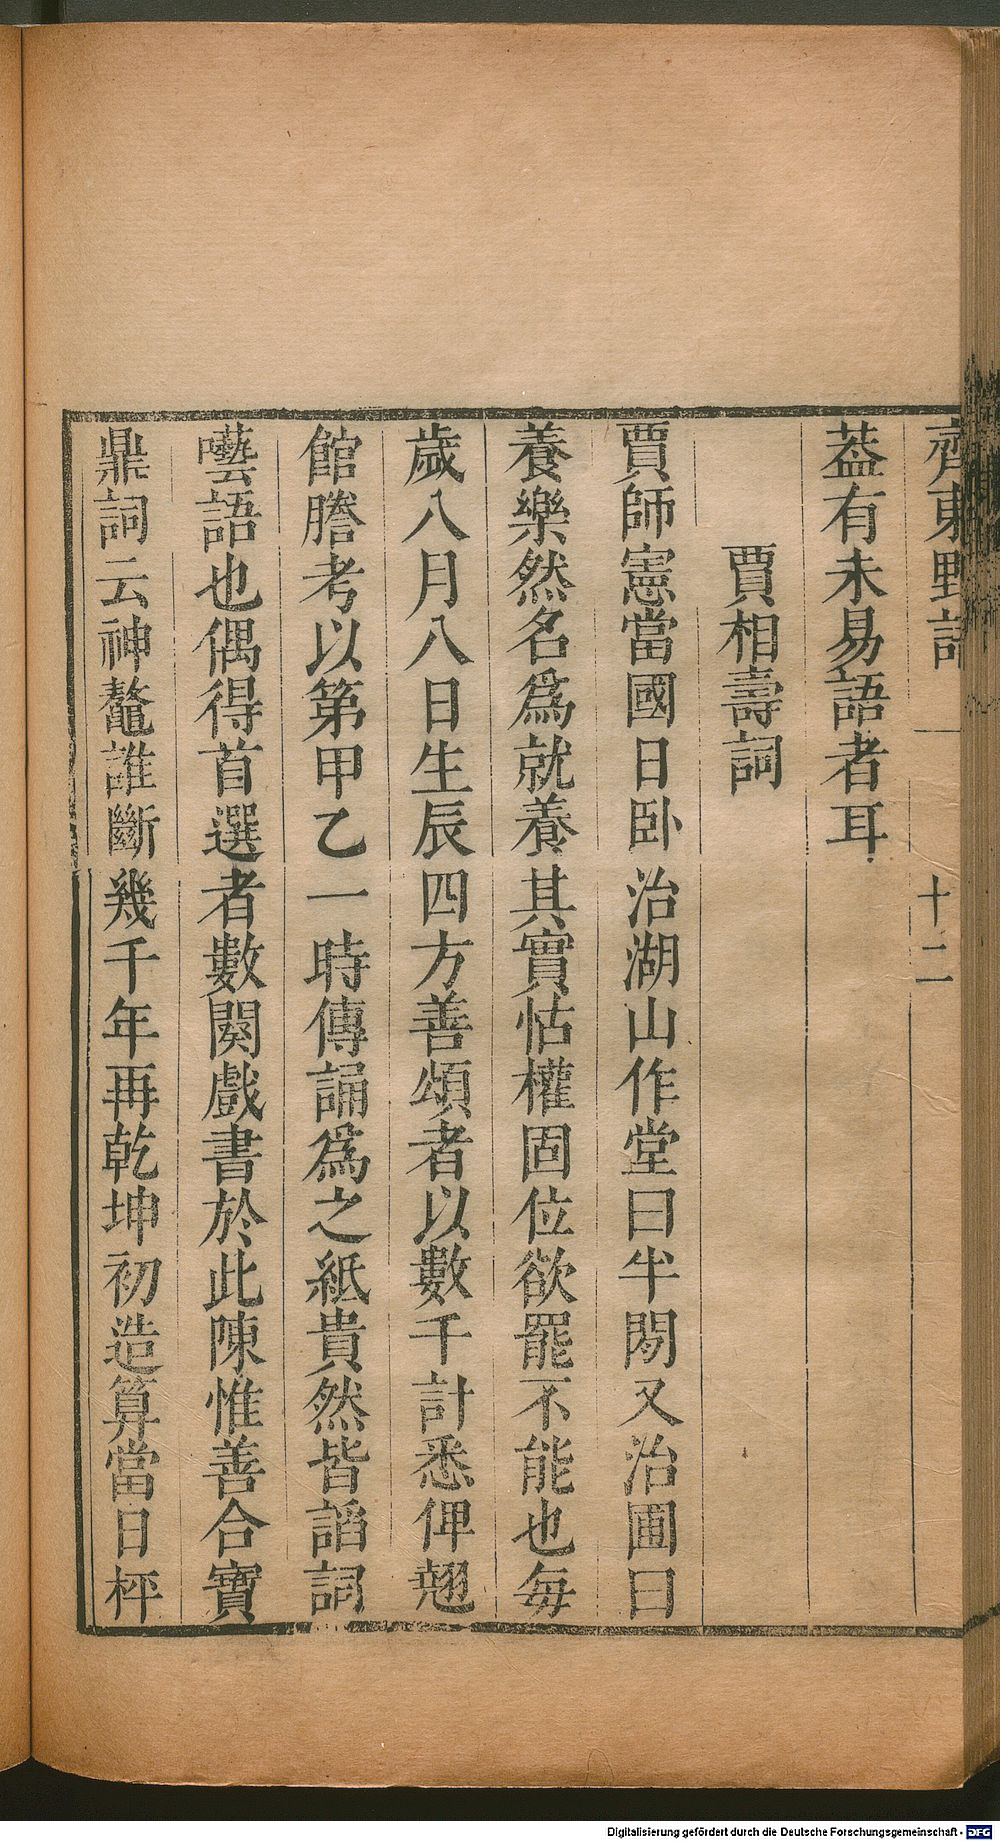 齊東野語
十二
葢有未易語者耳
賈相壽詞
賈師憲當國日卧治湖山作堂曰半閑又治圃曰
養樂然名爲就養其實怙權固位欲罷不能也每
歲八月八日生辰四方善頌者以數千計悉俾翹
館謄考以第甲乙一時傳誦爲之紙貴然皆謟詞
囈語也偶得首選者數闋戲書於此陳惟善合寶
鼎詞云神鼇誰斷幾千年再乾坤初造算當日枰
Digitalisierung gefördert durch die Deutsche Forschungsgemeinschaft - DFG